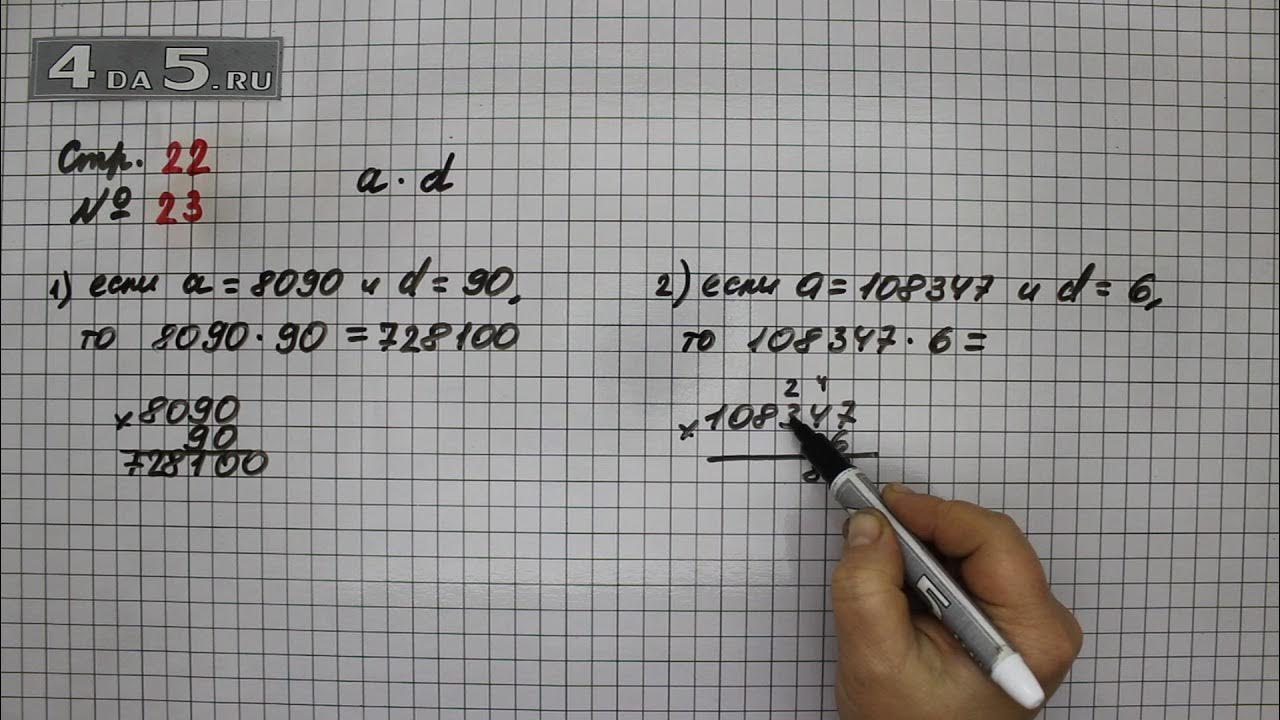 4DA5.RU
Стр. 22
№ 23
a · d
1) если a = 8090 и d = 90,
то 8090 · 90 = 728100
× 8090
90
728100
2) если a = 108347 и d = 6,
то 108347 · 6 =
2 4
× 108347
6
8